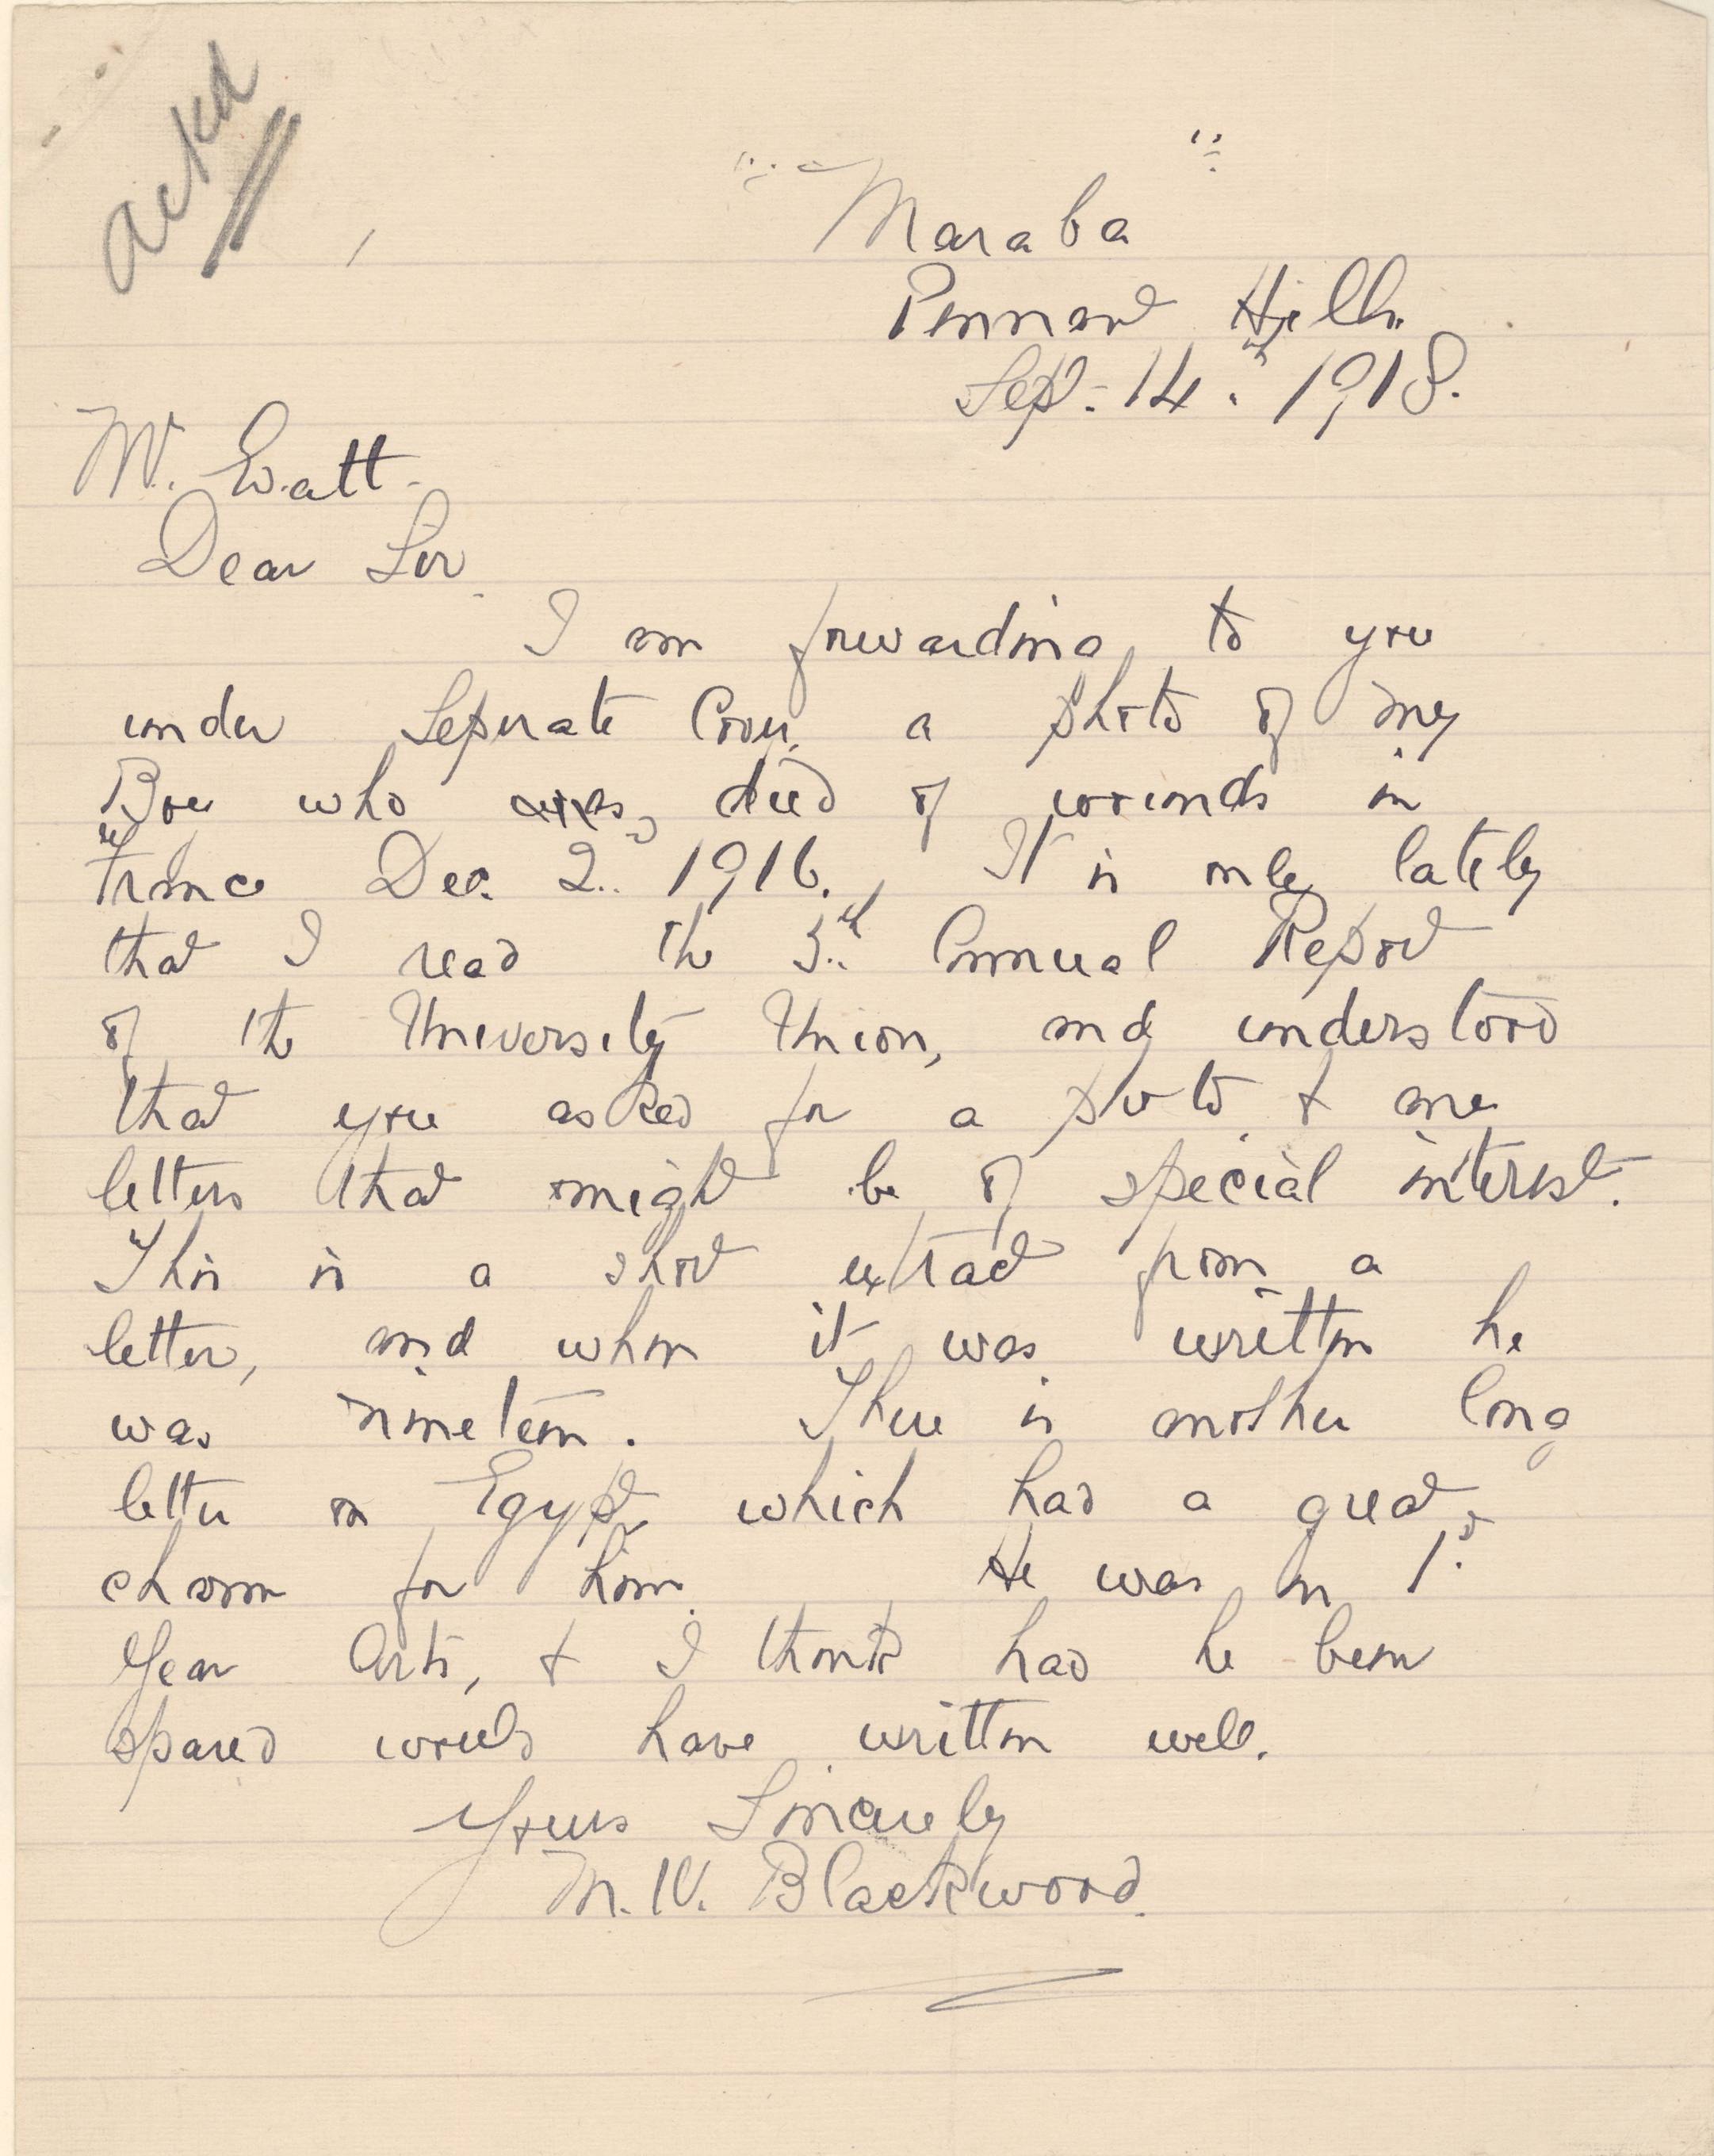 ackd
"Maraba"
Pennant Hills.
Sep. 14th 1918.
Mr. Evatt.
Dear Sir.
I am forwarding to you
under Seperate Cover, a photo of my
Boy who was, died of wounds in
France Dec. 2nd 1916. It is only lately
that I read the 3rd Annual Report
of the University Union, and understood
that you asked for a photo & any
letters that might be of special interest.
This is a short extract from a
letter, and when it was written he
was nineteen. There is another long
letter on Egypt which had a great
charm for him. He was in 1st
Year Arts, & I think had he been
spared would have written well.
Yours Sincerely
M. W. Blackwood.